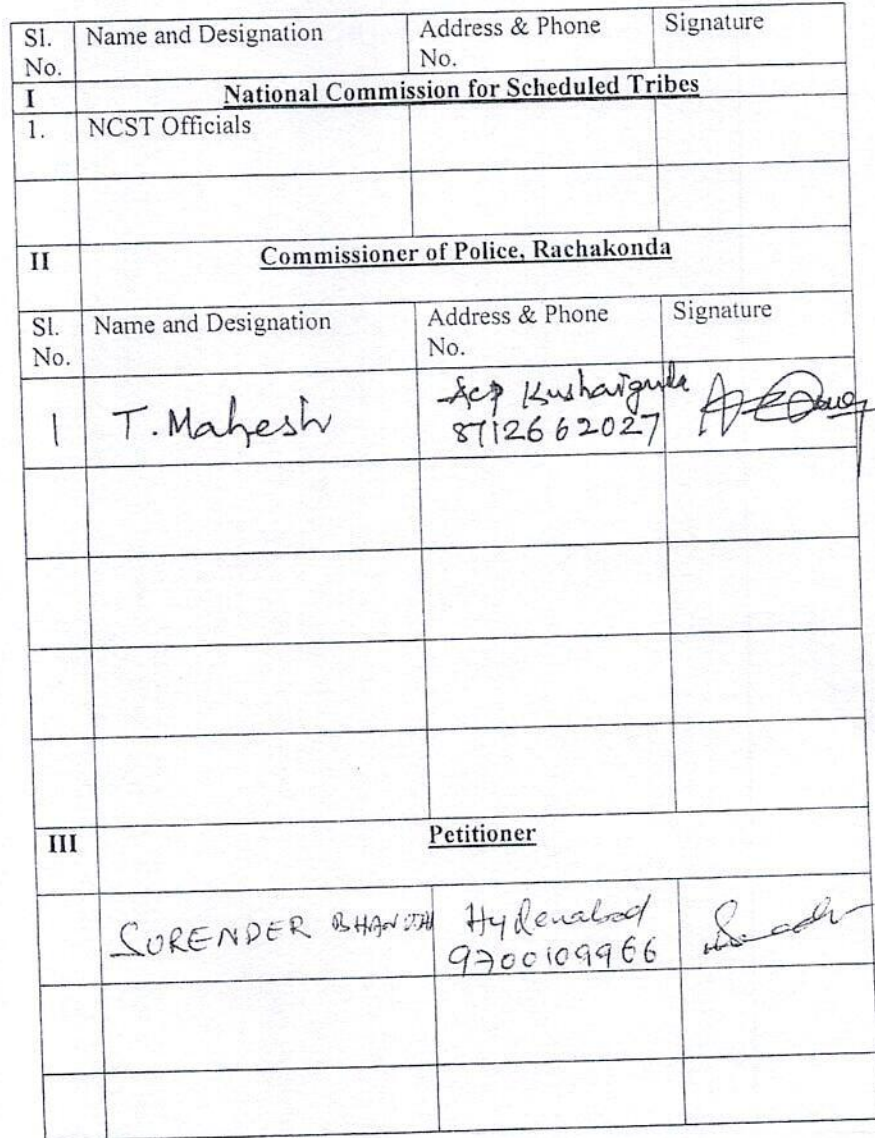 Sl. Name and Designation Address & Phone Signature
No. No.
I National Commission for Scheduled Tribes
1. NCST Officials
II Commissioner of Police, Rachakonda
Sl. Name and Designation Address & Phone Signature
No. No.
1 T. Mahesh Acp Kushaiguda
8712662027
III Petitioner
SURENDER Hyderabad
9700109966